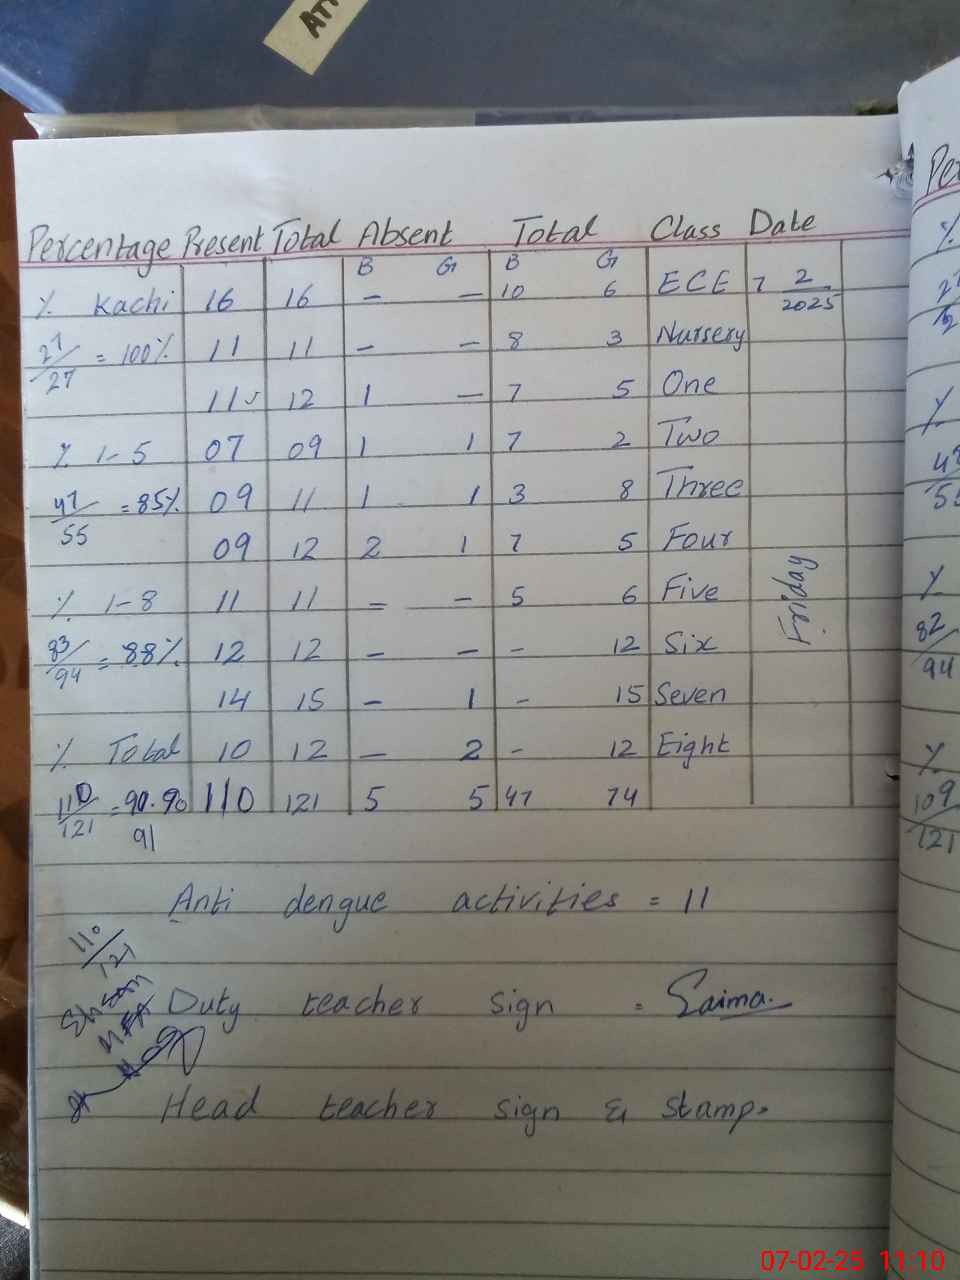 ATT
Percentage Present Total Absent Total Class Date
B G B G
% Kachi 16 16 – – 10 6 ECE 7 2/2025
27/27 = 100% 11 11 – – 8 3 Nursery
11 12 1 – 7 5 One
% 1-5 07 09 1 1 7 2 Two
47/55 = 85% 09 11 1 1 3 8 Three
09 12 2 1 7 5 Four
% 1-8 11 11 – – 5 6 Five
Friday
83/94 = 88% 12 12 – – – 12 Six
14 15 – 1 – 15 Seven
% Total 10 12 – 2 – 12 Eight
110/121 = 90.90 110 121 5 5 47 74
91
Anti dengue activities = 11
110/121
Duty teacher sign = Saima.
Head teacher sign & stamp.
Per
%
%
82/94
%
109/121
07-02-25 11:10